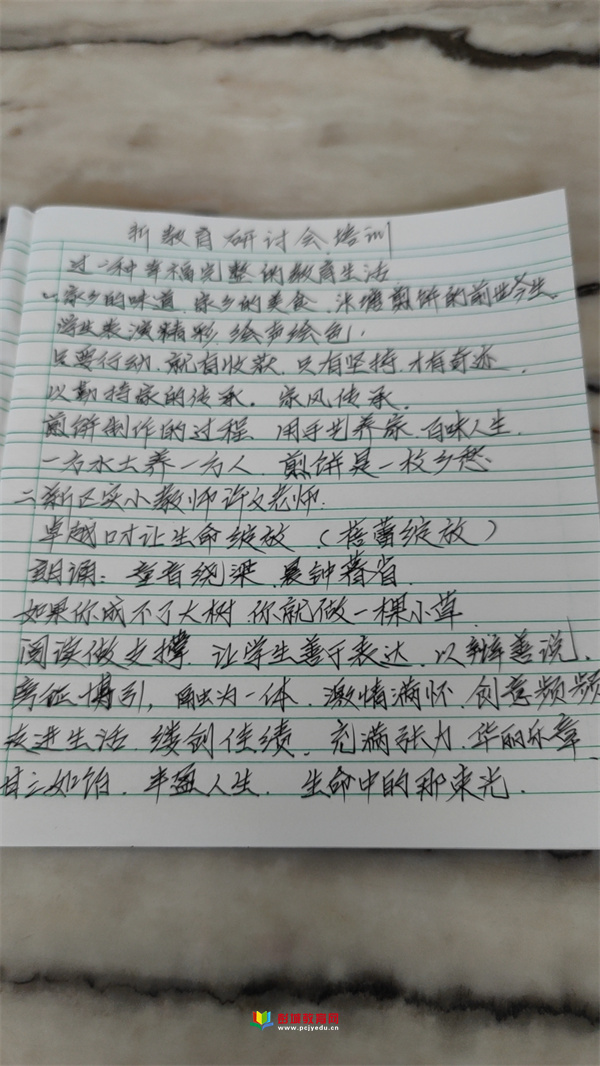 新教育研讨会培训
过一种幸福完整的教育生活
一、家乡的味道、家乡的美食、米塘煎饼的前世今生、
学生表演精彩,绘声绘色,
只要行动、就有收获、只有坚持、才有奇迹、
以勤持家的传承。家风传承、
煎饼制作的过程、用手艺养家、百味人生、
一方水土养一方人、煎饼是一枚乡愁
二、新区实小教师许文老师:
卓越口才让生命绽放 (蓓蕾绽放)
朗诵:童音绕梁、晨钟暮省、
如果你成不了大树,你就做一棵小草、
阅读做支撑、让学生善于表达、以辩善说、
旁征博引,融为一体、激情满怀、创意频频
走进生活、缕创佳绩、充满张力、华丽乐章、
甘之如饴、丰盈人生、生命中的那束光、
彭城教育网
www.pcjyedu.cn